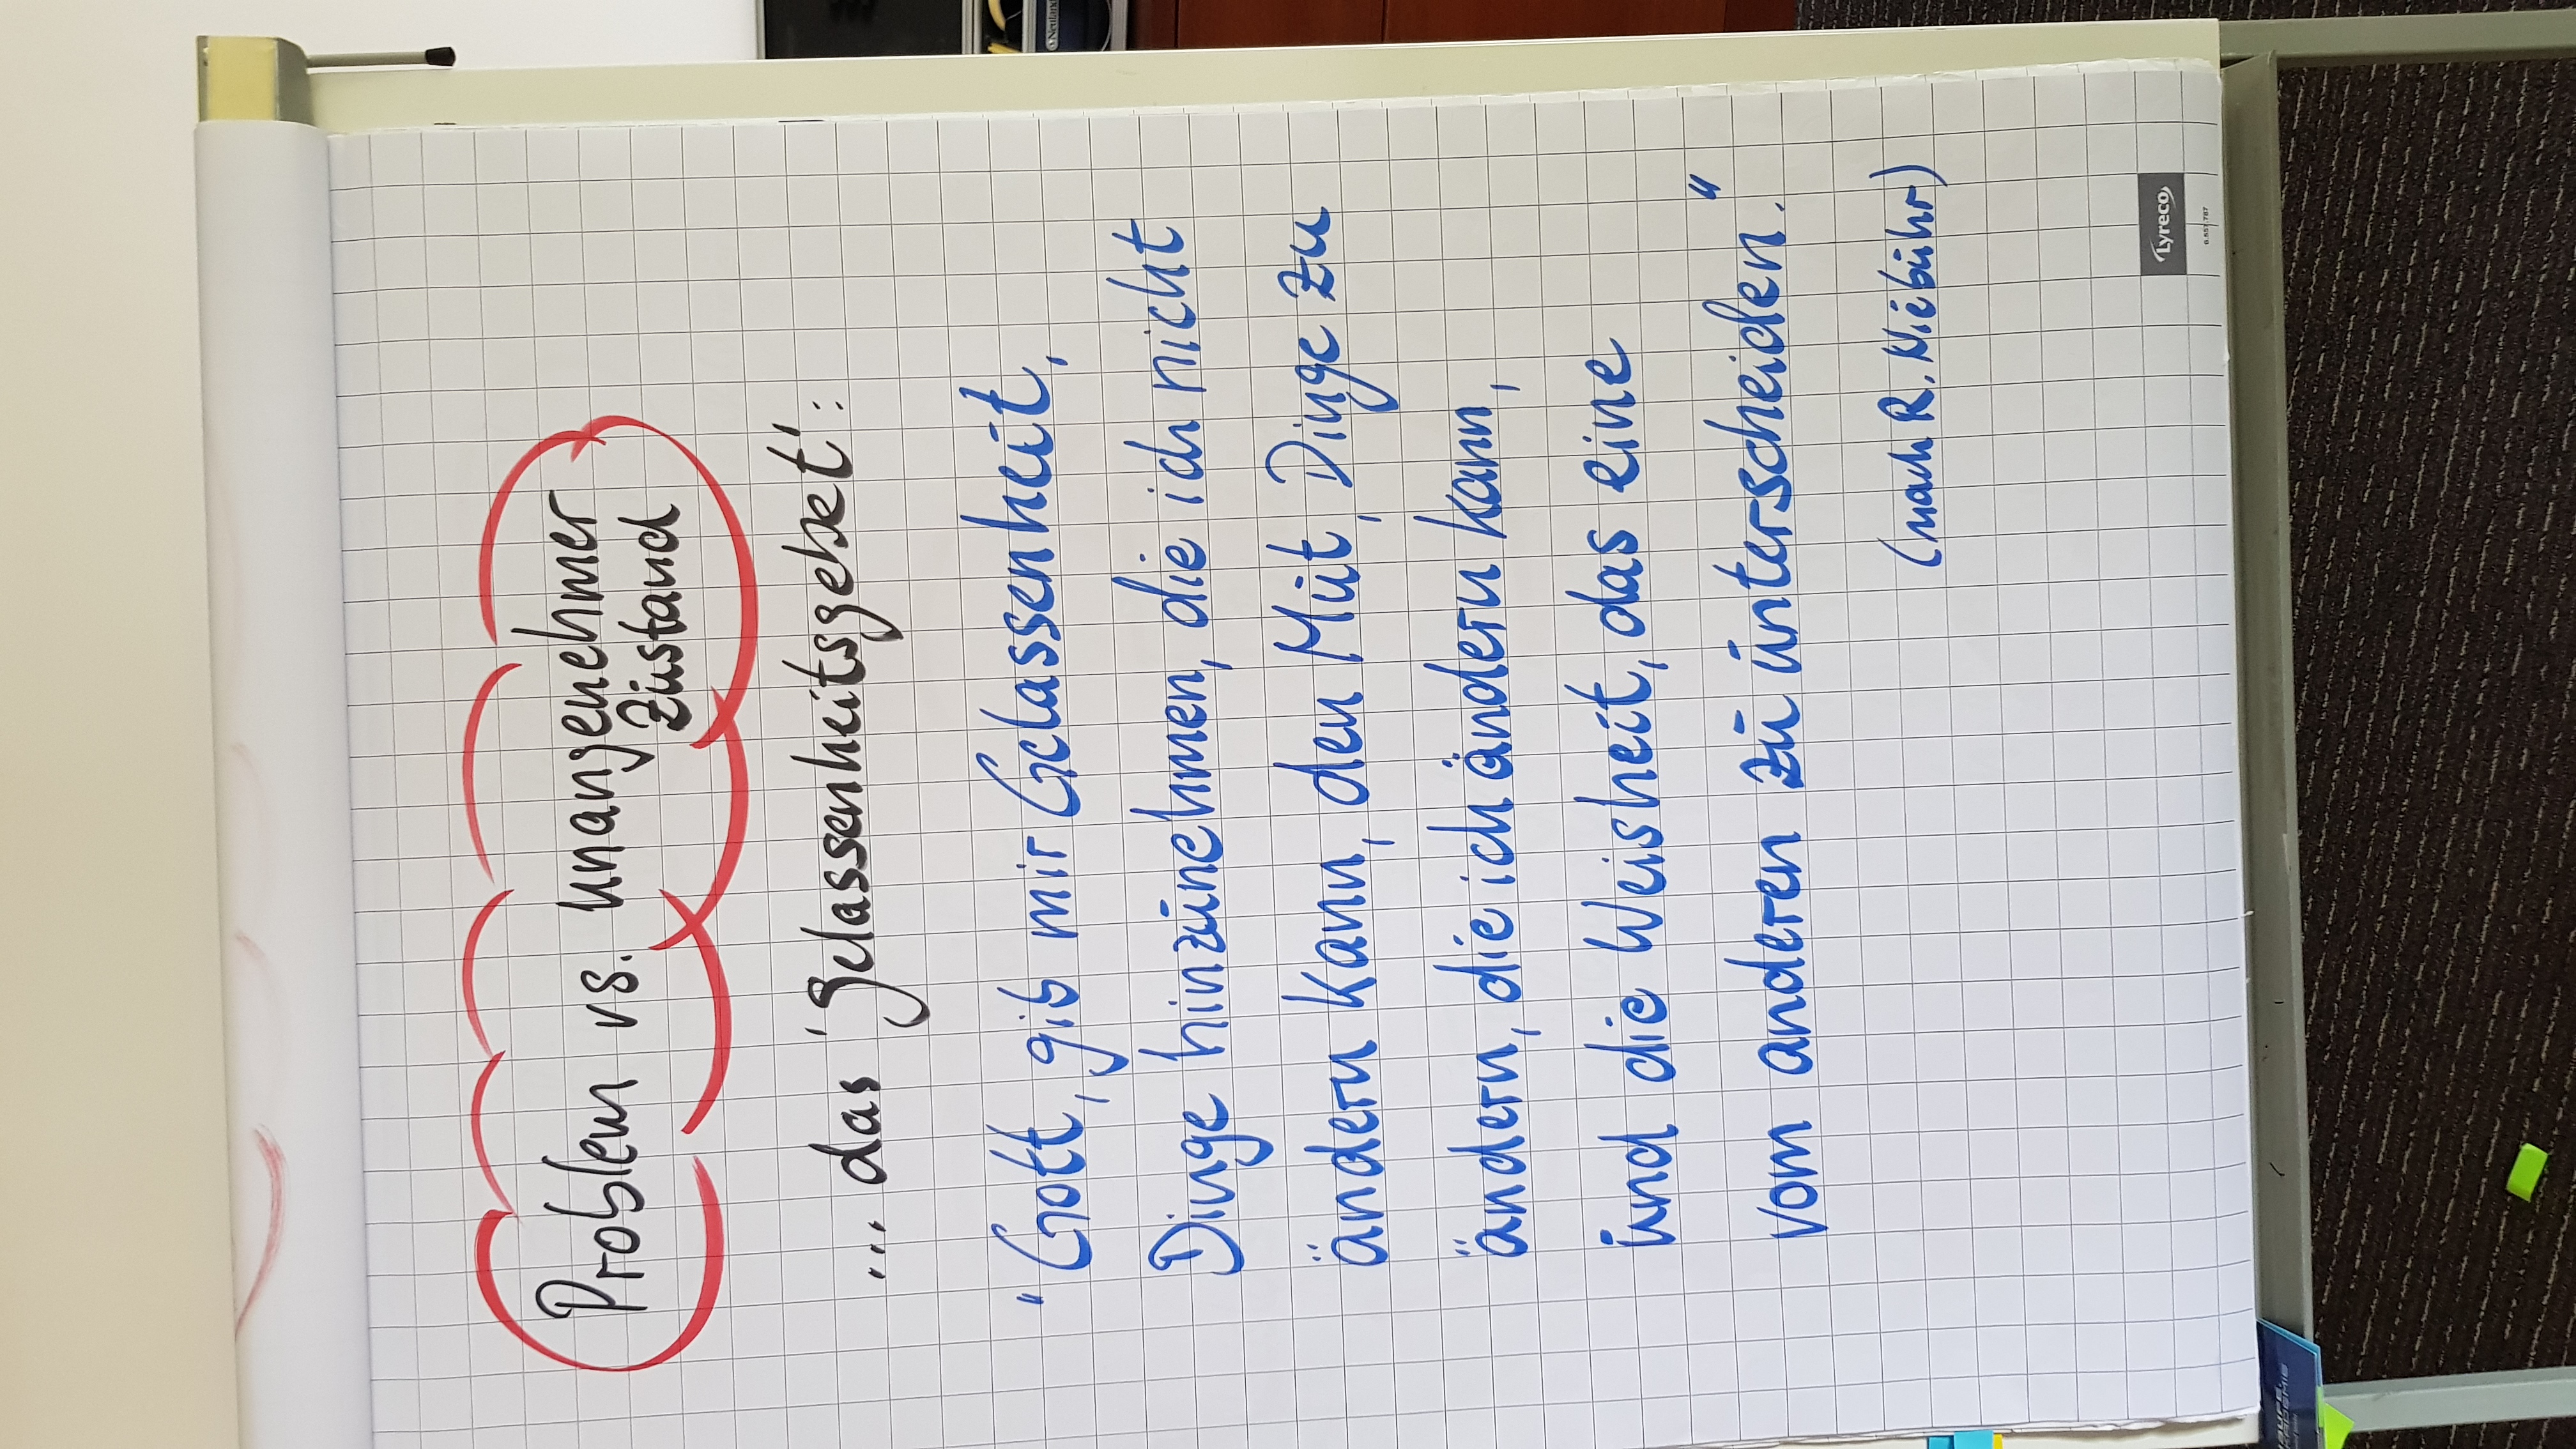 Problem vs. unangenehmer
Zustand
... das 'Gelassenheitsgebet':
"Gott, gib mir Gelassenheit,
Dinge hinzunehmen, die ich nicht
ändern kann, den Mut, Dinge zu
ändern, die ich ändern kann,
und die Weisheit, das eine
vom anderen zu unterscheiden."
(nach R. Niebuhr)
Lyreco
6.557.787
Neuland